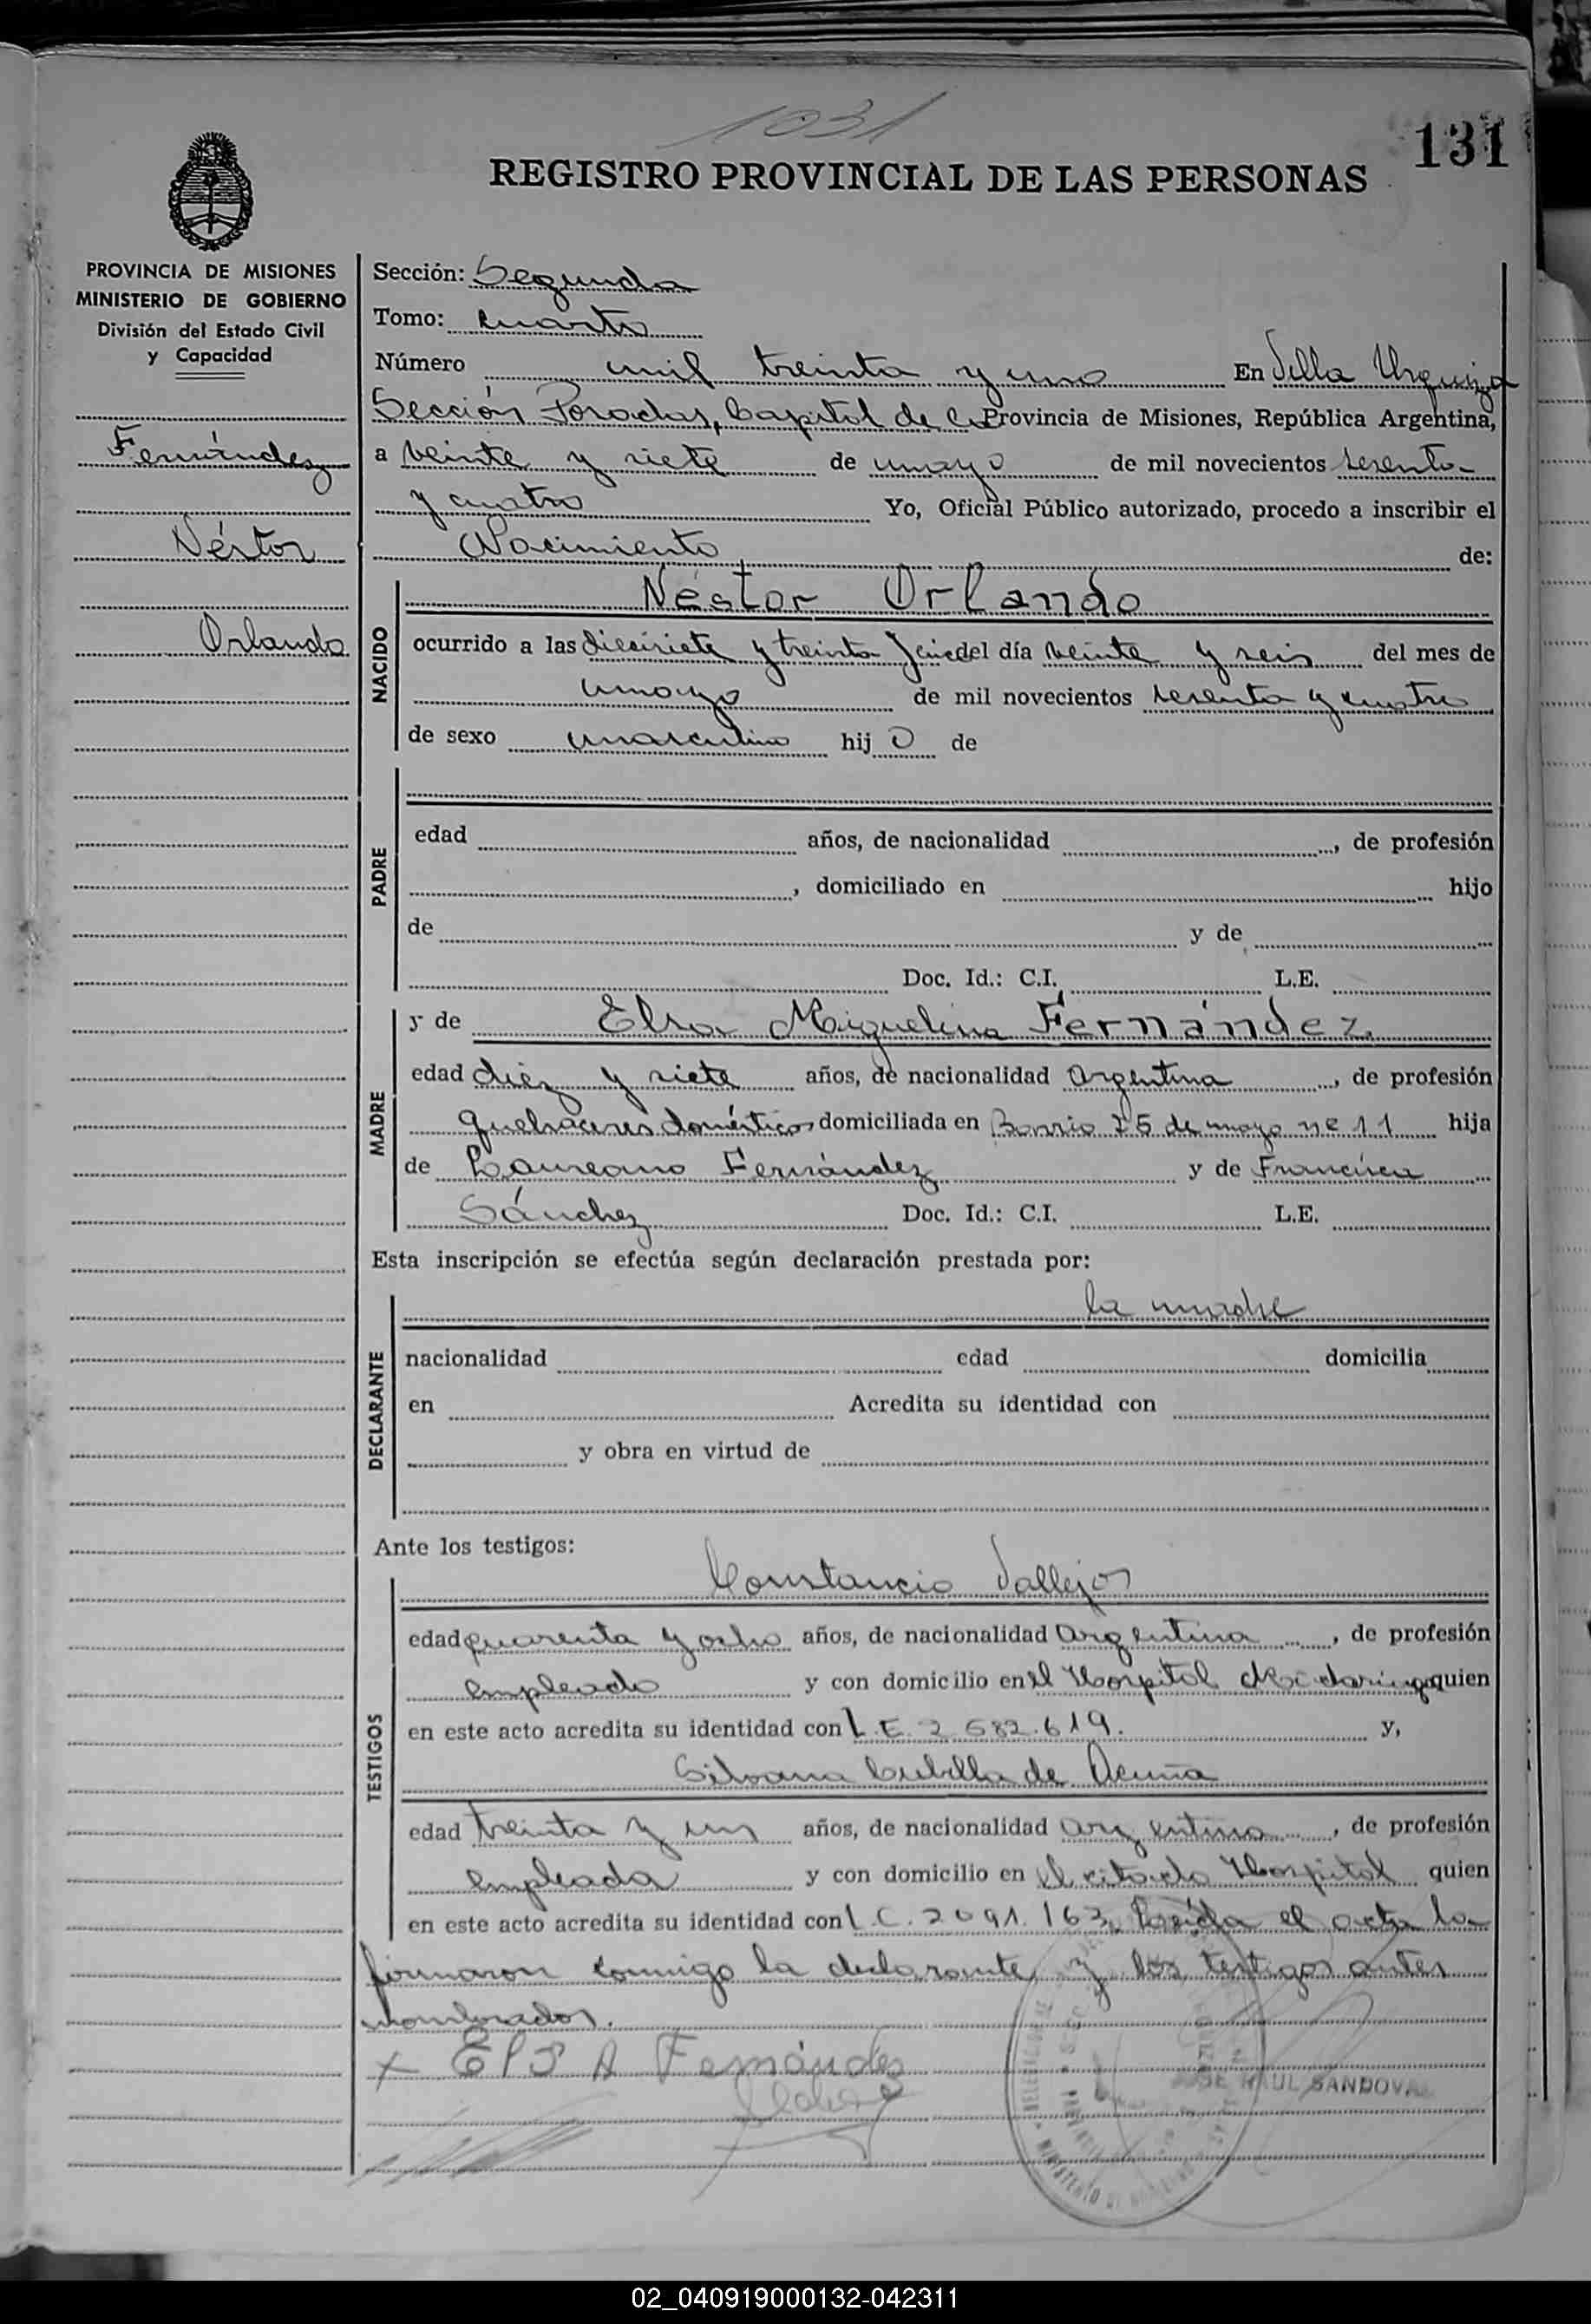 1031
131
REGISTRO PROVINCIAL DE LAS PERSONAS
PROVINCIA DE MISIONES
MINISTERIO DE GOBIERNO
División del Estado Civil
y Capacidad
Fernández
Néstor
Orlando
Sección: Segunda
Tomo: cuarto
Número mil treinta y uno En Villa Urquiza
Sección Posadas, Capital de la Provincia de Misiones, República Argentina,
a veinte y siete de mayo de mil novecientos sesenta
y cuatro Yo, Oficial Público autorizado, procedo a inscribir el
Nacimiento de:
NACIDO
Néstor Orlando
ocurrido a las diecisiete y treinta del día veinte y seis del mes de
mayo de mil novecientos sesenta y cuatro
de sexo masculino hijo de
PADRE
edad años, de nacionalidad , de profesión
, domiciliado en hijo
de y de
Doc. Id.: C.I. L.E.
MADRE
y de Elsa Miguelina Fernández
edad diez y siete años, de nacionalidad Argentina , de profesión
quehaceres domésticos domiciliada en Barrio 25 de mayo nº 11 hija
de Laureano Fernández y de Francisca
Sánchez Doc. Id.: C.I. L.E.
Esta inscripción se efectúa según declaración prestada por:
DECLARANTE
la madre
nacionalidad edad domicilia
en Acredita su identidad con
y obra en virtud de
Ante los testigos:
TESTIGOS
Constancio Vallejos
edad cuarenta y ocho años, de nacionalidad Argentina , de profesión
empleado y con domicilio en el Hospital Madariaga quien
en este acto acredita su identidad con L.E. 2.582.619. y,
Silvana Cubilla de Acuña
edad treinta y un años, de nacionalidad argentina , de profesión
empleada y con domicilio en el citado Hospital quien
en este acto acredita su identidad con L.C. 2091.163. Leída el acta la
firmaron conmigo la declarante y los testigos antes
nombrados.
x ElSA Fernández
RAUL SANDOVAL
02_040919000132-042311